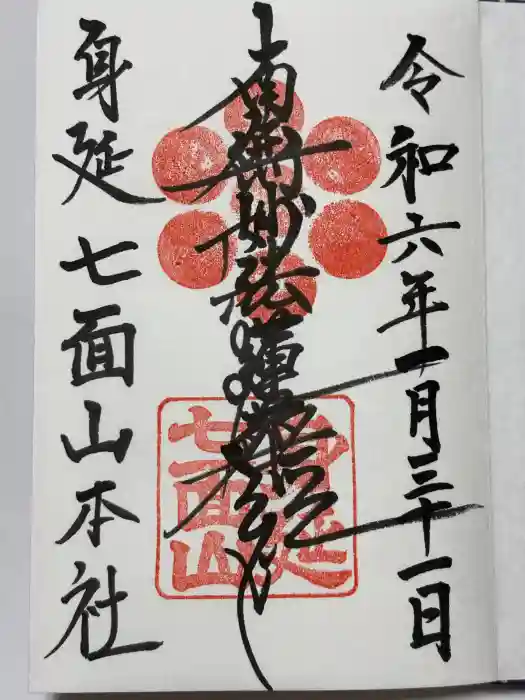 令和六年一月三十一日
南無妙法蓮華経
身延七面山本社
身延
七面山